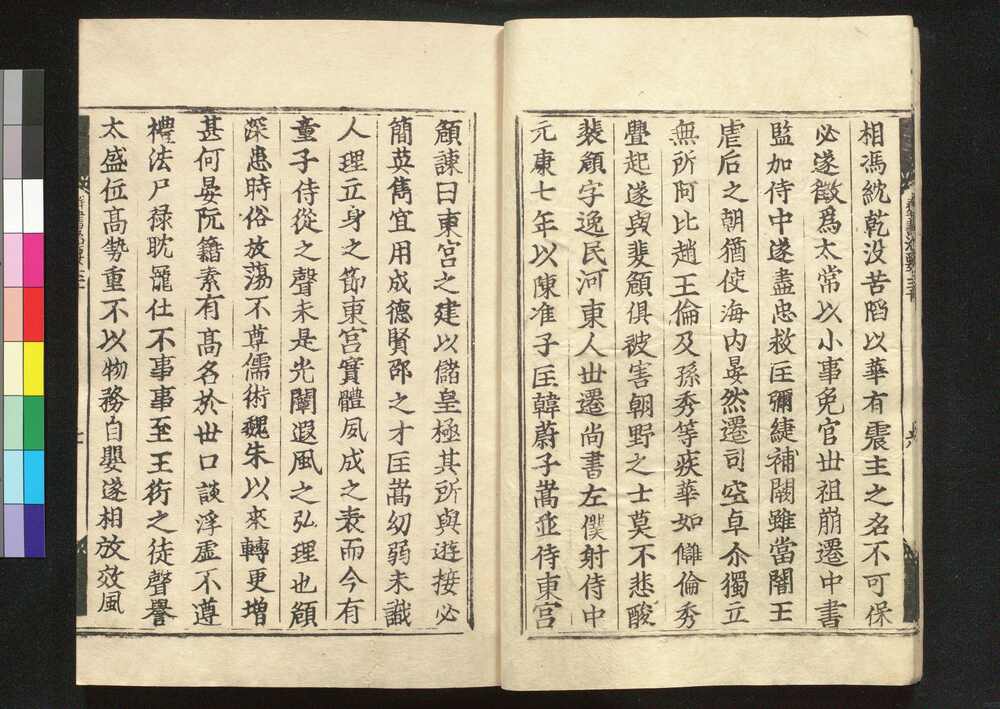 相馮紞乾没苦陷以華有震主之名不可保
必遂徵爲太常以小事免官世祖崩遷中書
監加侍中遂盡忠救匡彌縫補闕雖當闇王
虐后之朝猶使海内晏然遷司空卓尒獨立
無所阿比趙王倫及孫秀等疾華如讎倫秀
疊起遂與裴頠俱被害朝野之士莫不悲酸
裴頠字逸民河東人世遷尚書左僕射侍中
元康七年以陳准子匡韓蔚子嵩並侍東宮
頠諫曰東宮之建以儲皇極其所與遊接必
簡英雋宜用成德賢邵之才匡嵩幼弱未識
人理立身之節東宮實體夙成之表而今有
童子侍從之聲未是光闡遐風之弘理也頠
深患時俗放蕩不尊儒術魏朱以來轉更增
甚何晏阮籍素有髙名於世口談浮虛不遵
禮法尸禄耽寵仕不事事至王衍之徒聲譽
太盛位髙勢重不以物務自嬰遂相放效風